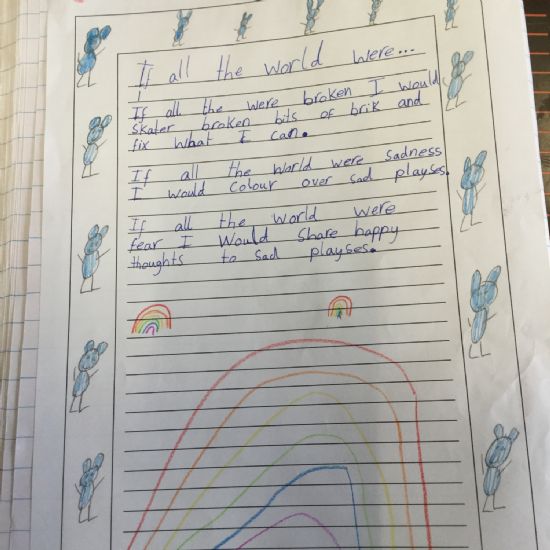 If all the world were...
If all the were broken I would
skater broken bits of brik and
fix what I can.
If all the world were sadness
I would colour over sad playses.
If all the world were
fear I would share happy
thoughts to sad playses.